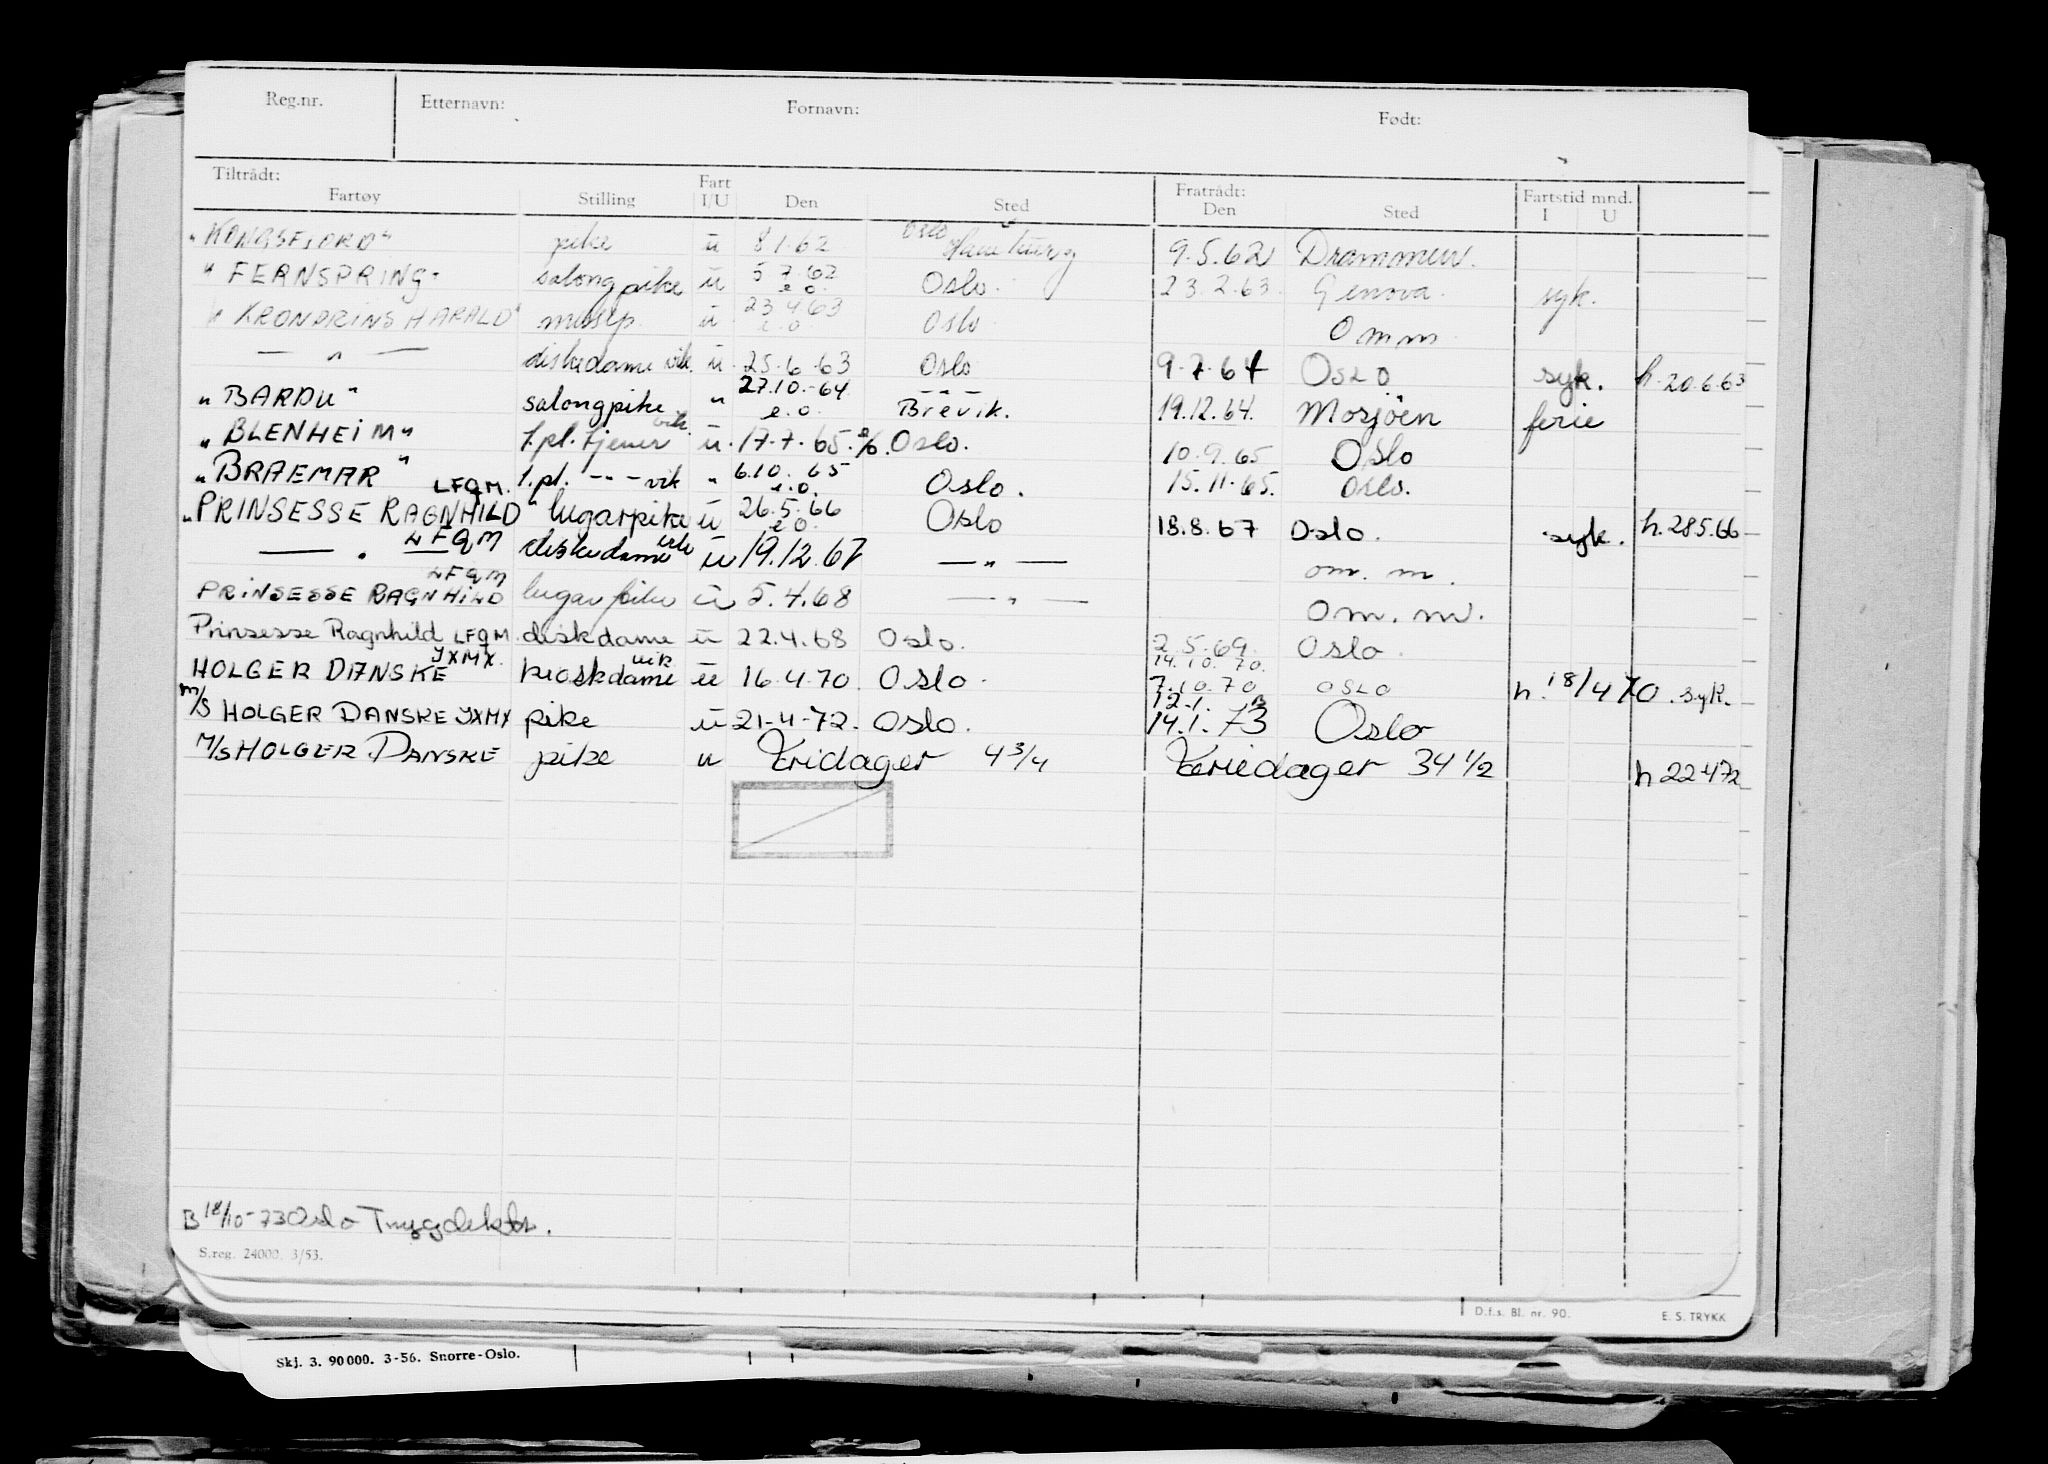 Reg.nr. Etternavn: Fornavn: Født:
Tiltrådt: Fratrådt:
Fartøy Stilling Fart I/U Den Sted Den Sted Fartstid mnd. I U
"KONGSFJORD" pike u 8.1.62 Oslo 9.5.62 Drammen.
"FERNSPRING" salongpike u 5.7.62 e.o. Oslo. 23.2.63. Genova. syk.
"KRONPRINS HARALD" u 23.4.63 e.o Oslo Omm
— " — diskedame vik. u. 25.6.63 Oslo 9.7.64 OSLO syk. h.20.6.63
"BARDU" salongpike " 27.10.-64 e.o. Brevik. 19.12.64. Mosjöen ferie
"BLENHEIM" 1.pl. tjener vik. u. 17.7.65. Oslo. 10.9.65 Oslo
"BRAEMAR" 1.pl. -"- vik " 6.10.65 e.o. Oslo. 15.11.65. Oslo.
"PRINSESSE RAGNHILD" LFQM. lugarpike u 26.5.66 e.o. Oslo 18.8.67 Oslo. syk. h.28.5.66
— " — LFQM diskedame vik u 19.12.67 — " — om. m.
PRINSESSE RAGNHILD LFQM lugarpike u 5.4.68 — " — Om. m.
Prinsesse Ragnhild LFQM. diskdame u 22.4.68 Oslo. 2.5.69. Oslo.
HOLGER DANSKE JXMX. kioskdame vik u 16.4.70. Oslo. 14.10.70. 7.10.70 OSLO h. 18/4 70. syk.
m/s HOLGER DANSKE JXMX pike u 21-4-72. Oslo. 12.1. 14.1.73 Oslo
M/S HOLGER DANSKE pike u Fridager 4 3/4 Feriedager 34 1/2 h 22472
B 18/10-73 Oslo Trygdektr.
S.reg. 24000. 3/53.
D.f.s. Bl. nr. 90. E. S. TRYKK
Skj. 3. 90000. 3-56. Snorre-Oslo.